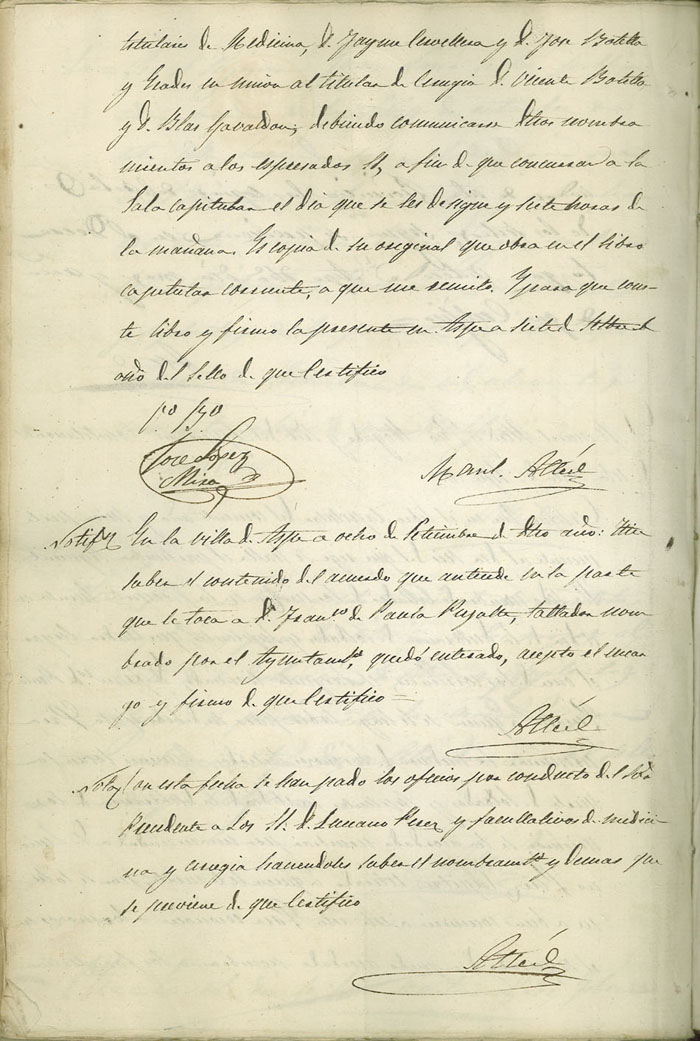 titulares de Medicina, D. Jayme Cervellera y D. Jose Botella
y Grades en union al titular de Cirugia D. Vicente Botella
y D. Blas Gavaldon; debiendo comunicarse dhos nombra
mientos a los espresados SS, a fin de que concurran a la
Sala capitular el dia que se les designe y siete horas de
la mañana. Es copia de su original que obra en el libro
capitular corriente, a que me remito. Y para que cons-
te libro y firmo la presente en Aspe a siete de Setbre del
año del Sello de que Certifico
Vº Bº
Jose Lopez
Mira
Manl. Alted
Notifn En la villa de Aspe a ocho de Setiembre de dho año: Hice
saber el contenido del acuerdo que antecede en la parte
que le toca a D. Franco de Paula Pujalte, tallador nom
brado por el Ayuntamto, quedó enterado, acepto el encar
go y firmo de que Certifico =
Alted
Nota/ Con esta fecha se han pasado los oficios por conducto del Sor
Presidente a los SS. D. Luciano Perez y facultativos de medici-
na y cirugia haciendoles saber el nombramto y demas que
se previene de que Certifico
Alted